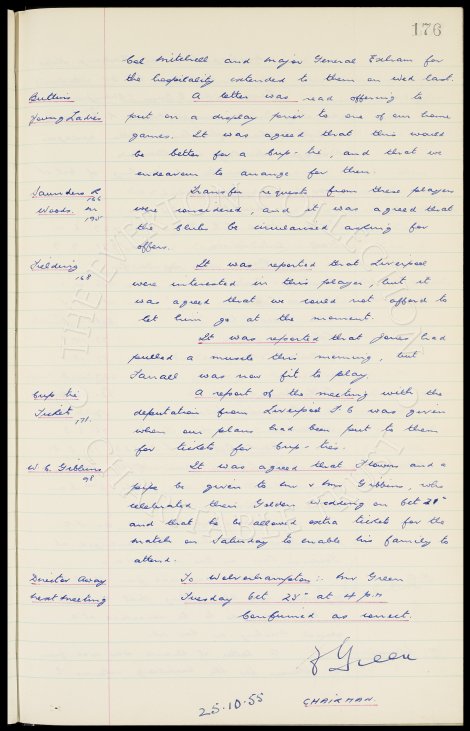 176
Col Mitchell and Major General Exham for
the hospitality extended to them on Wed last.
Butlins
Young Ladies
A letter was read offering to
put on a display prior to one of our home
games. It was agreed that this would
be better for a Cup-tie, and that we
endeavour to arrange for then.
Saunders R 166
Woods. M 195
Transfer requests from these players
were considered, and it was agreed that
the Clubs be circularised asking for
offers.
Fielding 168
It was reported that Liverpool
were interested in this player, but it
was agreed that we could not afford to
let him go at the moment.
It was reported that Jones had
pulled a muscle this morning, but
Farrall was now fit to play.
Cup tie
Ticket 171.
A report of the meeting with the
deputation from Liverpool F.C was given
when our plans had been put to them
for tickets for Cup-ties.
W. C. Gibbins 98
It was agreed that Flowers and a
pipe be given to Mr & Mrs. Gibbins, who
celebrated their Golden Wedding on Oct 28th
and that he be allowed extra tickets for the
match on Saturday to enable his family to
attend.
Director Away
To Wolverhampton:- Mr Green
Next Meeting
Tuesday Oct 25th at 4 p.m
Confirmed as correct.
F Green
25.10.55
CHAIRMAN
THE EVERTON COLLECTION